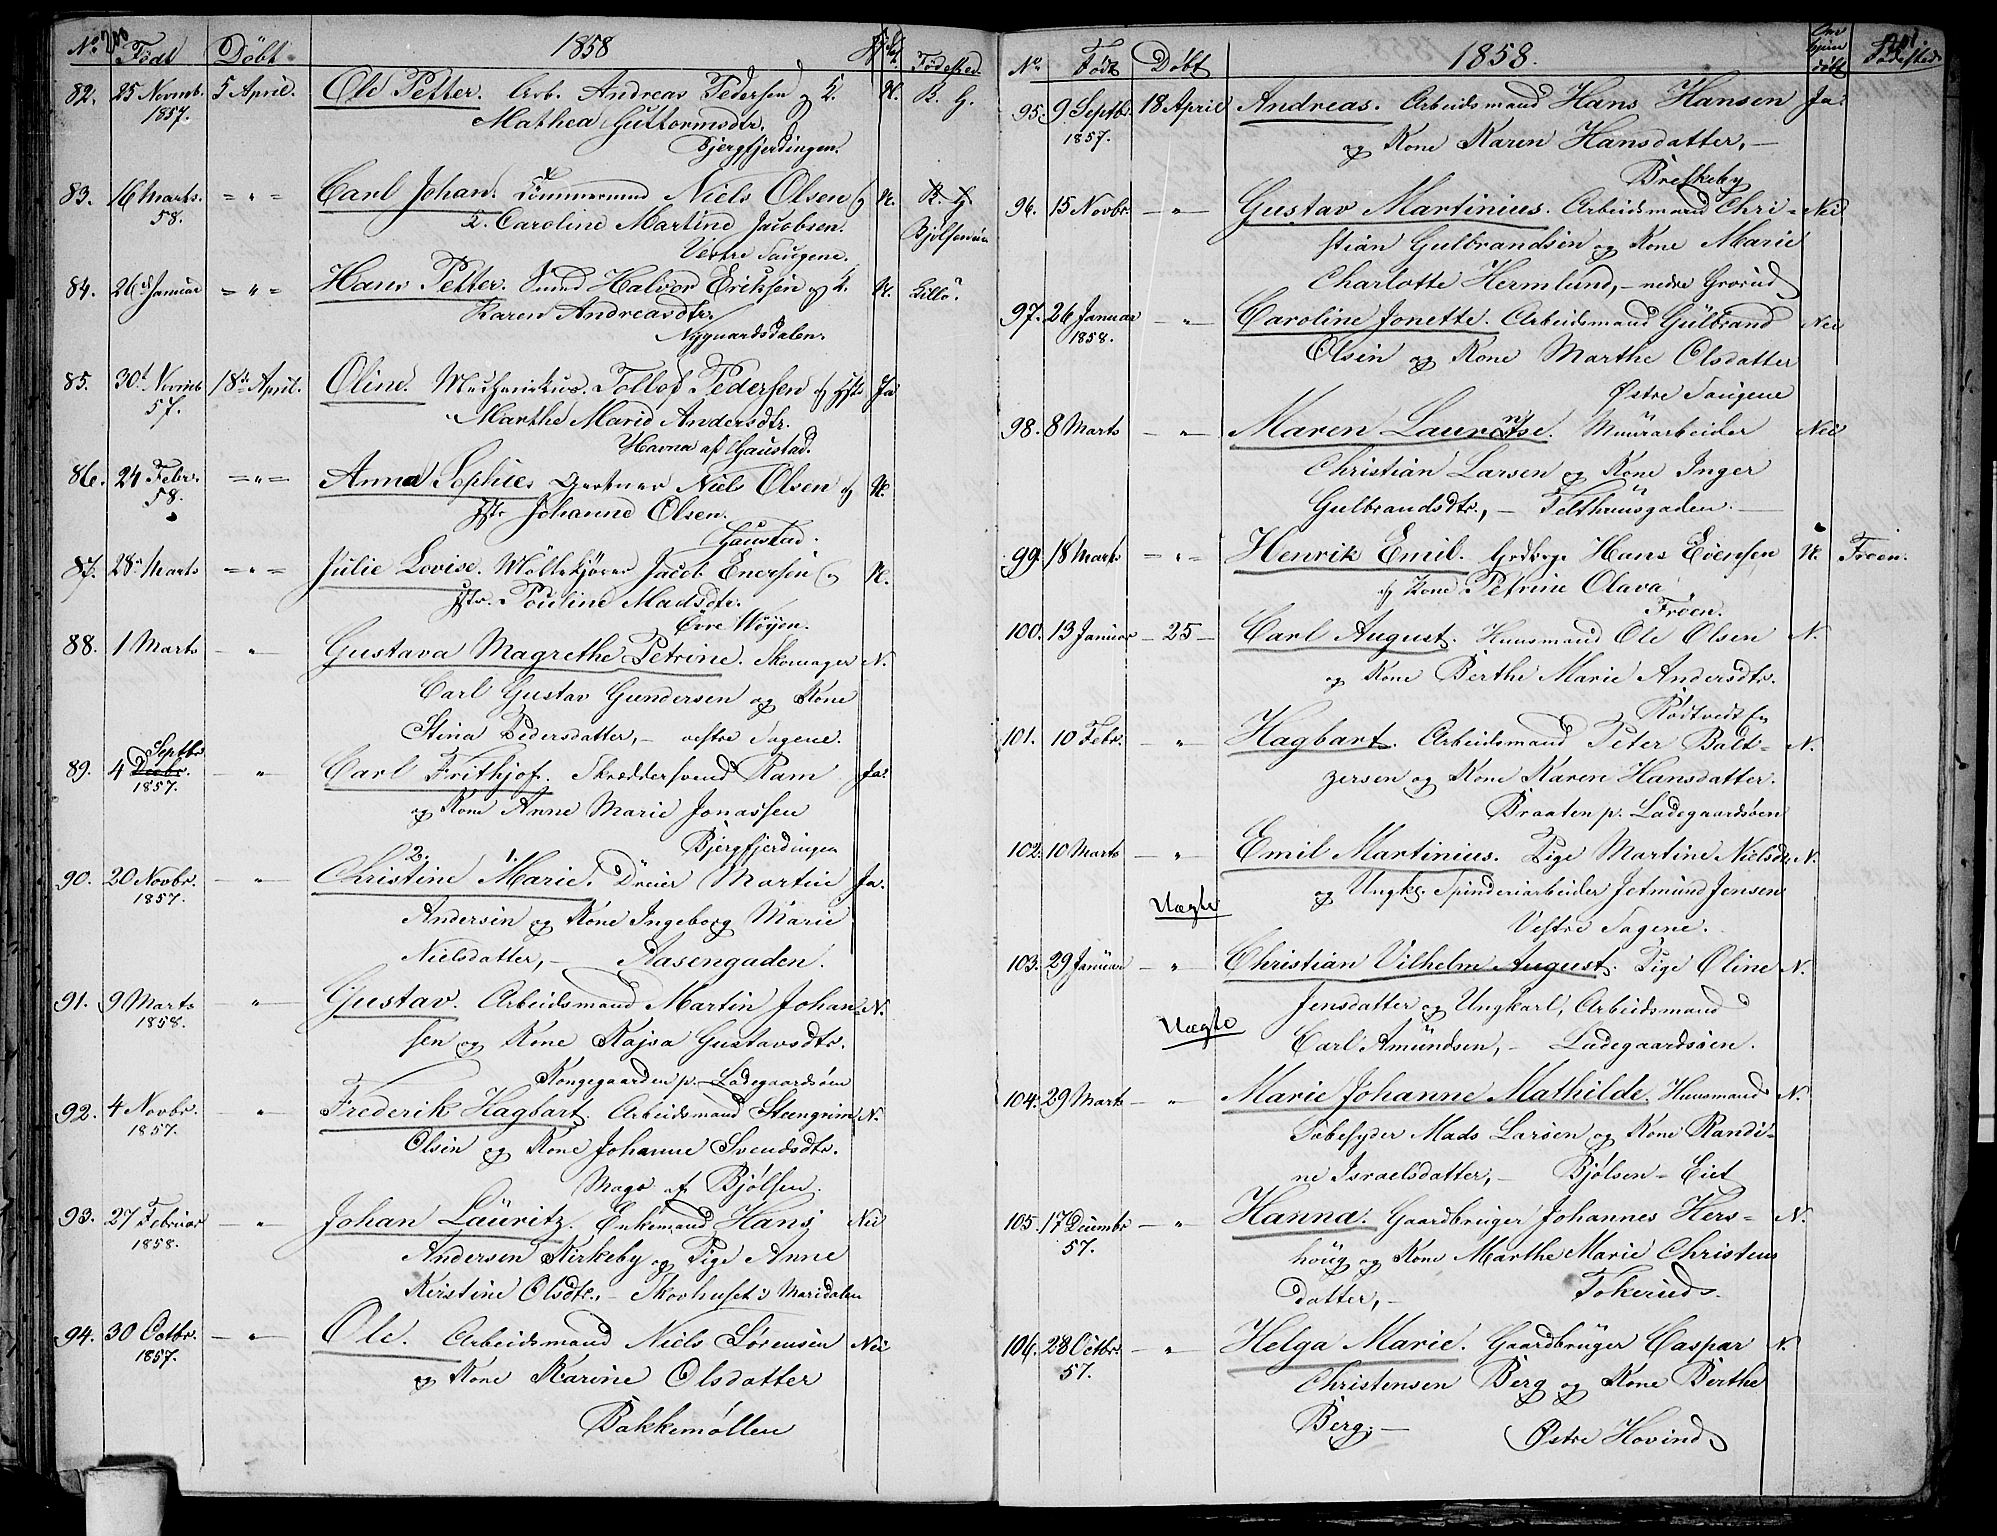 No Født Døbt 1858 Fødested
82. 25 Novmb. 5 April. Ole Petter. Arb. Andreas Pedersen og K. N. B. G.
1857. Mathea Guttormsdtr.
Bjergfjerdingen.
83. 16 Marts. = " = Carl Johan. Tømmermand Niels Olsen og N. B. G
58. K. Caroline Martine Jacobsen. Bjølsen
Vestre Saugene.
84. 26 Januar = " = Hans Petter. Smed Halvor Eriksen og K. N. Lillo.
Karen Andreasdtr.
Nygaardsdalen.
85. 30t Novmb 18de April. Oline. Mechanikus Tollof Pedersen og Hstr Ja
57. Marthe Marie Andersdtr.
Havna af Gaustad.
86. 24 Febr. = " = Anna Sophie. Gartner Niels Olsen og N.
58. Hstr Johanne Olsen.
Gaustad.
87. 28. Marts = " = Julie Lovise. Møllekjører Jacob Enersen og N.
Hstr. Pouline Madsdtr.
Övre Vøyen.
88. 1 Marts — " — Gustava Magrethe Petrine. Skomager N.
Carl Gustav Gundersen og Kone
Stina Pedersdatter, — vestre Sagene.
Septbr
89. 4 Decbr. — " — Carl Frithjof. Skræddersvend Ram Ja.
1857. og Kone Anne Marie Jonassen
Bjergfjerdingen
2. 1.
90. 20 Novbr. — " — Christine Marie. Dreier Martin Ja.
1857. Andersen og Kone Ingeborg Marie
Nielsdatter, — Aasengaden.
91. 9 Marts — " — Gustav. Arbeidsmand Martin Johan= N.
1858. sen og Kone Kajsa Gustavsdtr.
Kongegaarden p. Ladegaardsøen
92. 4 Novbr. — " — Frederik Hagbart. Arbeidsmand Steengrim N.
1857. Olsen og Kone Johanne Svendsdtr.
Mago af Bjølsen.
93. 27 Februar — " — Johan Lauritz. Enkemand Hans Nei
1858. Andersen Kirkeby og Pige Anne
Kirstine Olsdtr., — Skovhuset i Maridalen
94. 30 Octbr. — " — Ole. Arbeidsmand Niels Sørensen Nei
1857. og Kone Karine Olsdatter
Bakkemøllen
No Født Døbt 1858. Om hjem døbt Fødested
95. 9 Septbr. 18 April Andreas. Arbeidsmand Hans Hansen Ja.
1857. og Kone Karen Hansdatter, —
Briskeby
96. 15 Novbr. — " — Gustav Martinius. Arbeidsmand Chri= Nei
stian Gulbrandsen og Kone Marie
Charlotte Hermlund, — nedre Grorud
97. 26 Januar — " — Caroline Jonette. Arbeidsmand Gulbrand Nei
1858. Olsen og Kone Marthe Olsdatter
Østre Saugene
98. 8 Marts — " — Maren Laurentse. Muurarbeider Nei
Christian Larsen og Kone Inger
Gulbrandsdtr., — Felthuusgaden. —
99. 18 Marts = " = Henrik Emil. Grdbrgr. Hans Evensen N. Frøen.
og Kone Petrine Olava
Frøen.
100. 13 Januar — 25 — Carl August. Huusmand Ole Olsen N.
og Kone Berthe Marie Andersdtr.
Rødtvedt E.
101. 10 Febr. — " — Hagbart. Arbeidsmand Peter Balt= N.
zersen og Kone Karen Hansdatter.
Braaten p. Ladegaardsøen
102. 10 Marts — " — Emil Martinius. Pige Martine Nielsdtr. N.
Uægte og Ungk. Spinderiarbeider Jetmund Jensen
Vestre Sagene.
103. 29 Januar — " — Christian Vilhelm August. Pige Oline N.
Jensdatter og Ungkarl, Arbeidsmand
Uægte Carl Amundsen, — Ladegaardsøen.
104. 29 Marts — " — Marie Johanne Mathilde. Huusmand N.
Sæbesyder Mads Larsen og Kone Randi=
ne Israelsdatter, — Bjølsen=Eiet
105. 17 Decembr — " — Hanna. Gaardbruger Johannes Hers= N.
57. houg og Kone Marthe Marie Christens
datter, — Tokerud.
106. 28 Octbr. — " — Helga Marie. Gaardbruger Caspar N.
57. Christensen Berg og Kone Berthe
Berg, — Østre Hovind